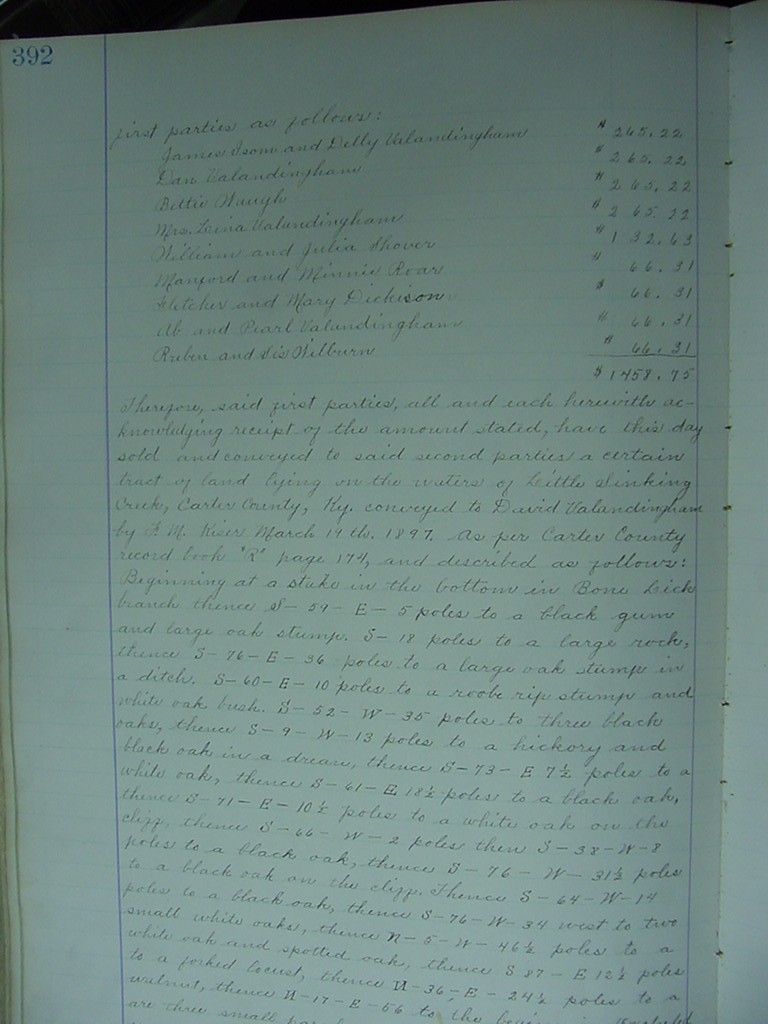 392
first parties as follows:
James Isom and Delly Valandingham $ 265.22
Dan Valandingham $ 265.22
Bettie Waugh $ 265.22
Mrs. Leina Valandingham $ 265.22
William and Julia Shover $ 132.63
Manford and Minnie Roar $ 66.31
Fletcher and Mary Dickison $ 66.31
Ab and Pearl Valandingham $ 66.31
Reuben and Sis Wilburn $ 66.31
$1458.75
Therefore, said first parties, all and each herewith ac-
knowledging receipt of the amount stated, have this day
sold and conveyed to said second parties a certain
tract of land lying on the waters of Little Sinking
Creek, Carter County, Ky. conveyed to David Valandingham
by F. M. Kiser March 17th. 1897. As per Carter County
record book "R" page 174, and described as follows:
Beginning at a stake in the bottom in Bone Lick
branch thence S-59-E-5 poles to a black gum
and large oak stump. S-18 poles to a large rock,
thence S-76-E-36 poles to a large oak stump in
a ditch. S-60-E-10 poles to a stump and
white oak bush. S-52-W-35 poles to three black
oaks, thence S-9-W-13 poles to a hickory and
black oak in a drean, thence S-73-E 7½ poles to a
white oak, thence S-61-E 18½ poles to a black oak,
thence S-71-E-10½ poles to a white oak on the
cliff, thence S-66-W-2 poles then S-38-W-8
poles to a black oak, thence S-76-W-31½ poles
to a black oak on the cliff. Thence S-64-W-14
poles to a black oak, thence S-76-W-34 west to two
small white oaks, thence N-5-W-46½ poles to a
white oak and spotted oak, thence S 87-E 12½ poles
to a forked locust, thence N-36-E-24½ poles to a
walnut, thence N-17-E-56 to the
are three small